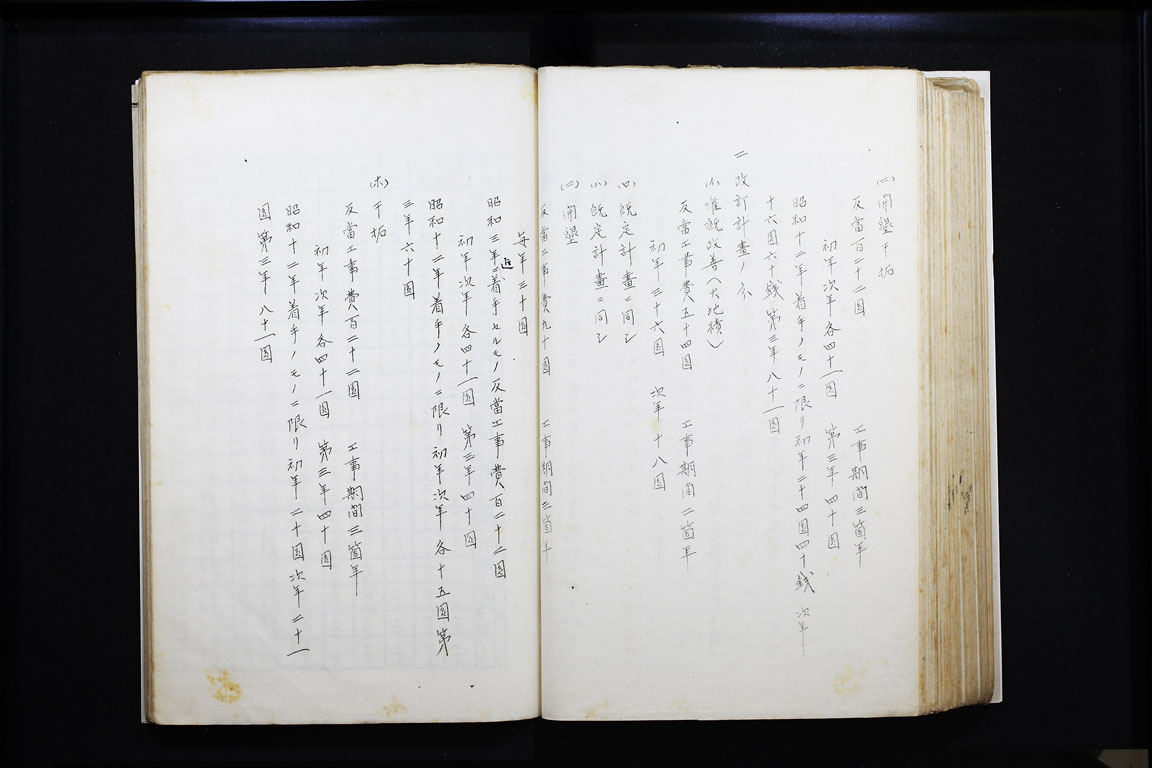 (ニ)開墾干拓
反當百二十二圓　工事期間三箇年
初年次年各四十一圓　第三年四十圓
昭和十二年着手ノモノニ限リ初年二十四圓四十錢　次年
十六圓六十錢第三年八十一圓
二　改訂計畫ノ分
(イ)灌漑改善(大地積)
反當工事費五十四圓　工事期間二箇年
初年三十六圓　次年十八圓
(ロ)既定計畫ニ同シ
(ハ)既定計畫ニ同シ
(ニ)開墾
反當工事費九十圓　工事期間三箇年
每年三十圓
昭和三年迄ニ着手セルモノ反當工事費百二十二圓
初年次年各四十一圓　第三年四十圓
昭和十二年着手ノモノニ限リ初年次年各十五圓第
三年六十圓
(ホ)干拓
反當工事費百二十二圓　工事期間三箇年
初年次年各四十一圓　第三年四十圓
昭和十二年着手ノモノニ限リ初年二十圓次年二十一
圓第三年八十一圓